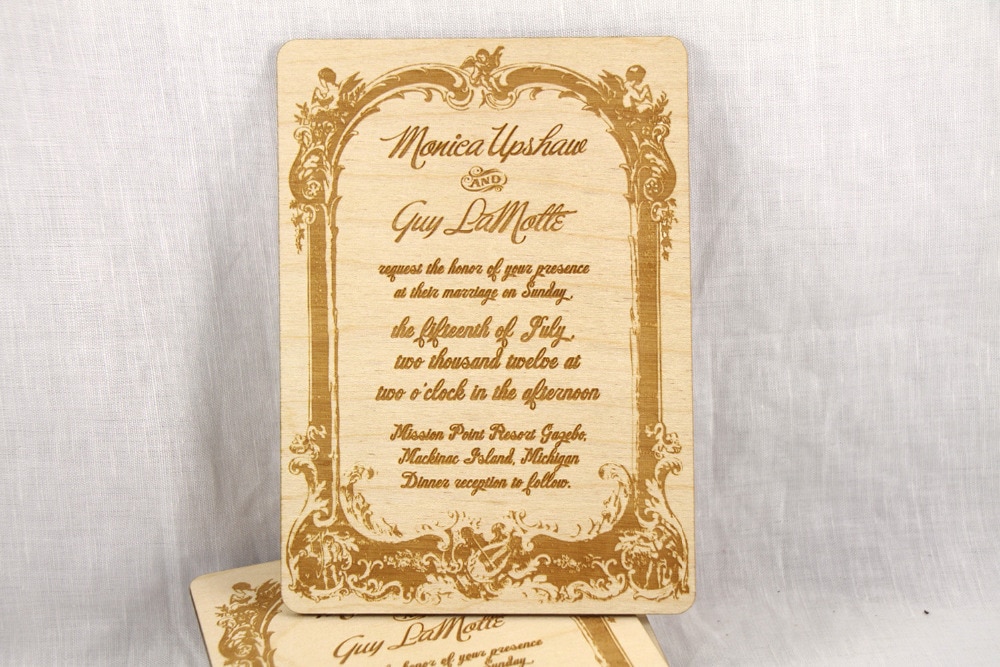 Monica Upshaw
AND
Guy LaMotte
request the honor of your presence
at their marriage on Sunday,
the fifteenth of July,
two thousand twelve at
two o'clock in the afternoon
Mission Point Resort Gazebo,
Mackinac Island, Michigan
Dinner reception to follow.
Guy LaMotte
honor of your presence
Sunday